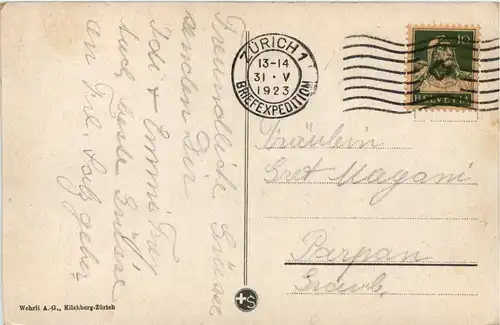 Freundliche Grüsse
senden Dir
Idi & Emmi Frey
Auch beste Grüsse
an Frl.
ZÜRICH 1
13-14
31 · V
1923
BRIEFEXPEDITION
10
HELVETIA
Fräulein
Gret Magani
Parpan
Graub.
Wehrli A.-G., Kilchberg-Zürich
S